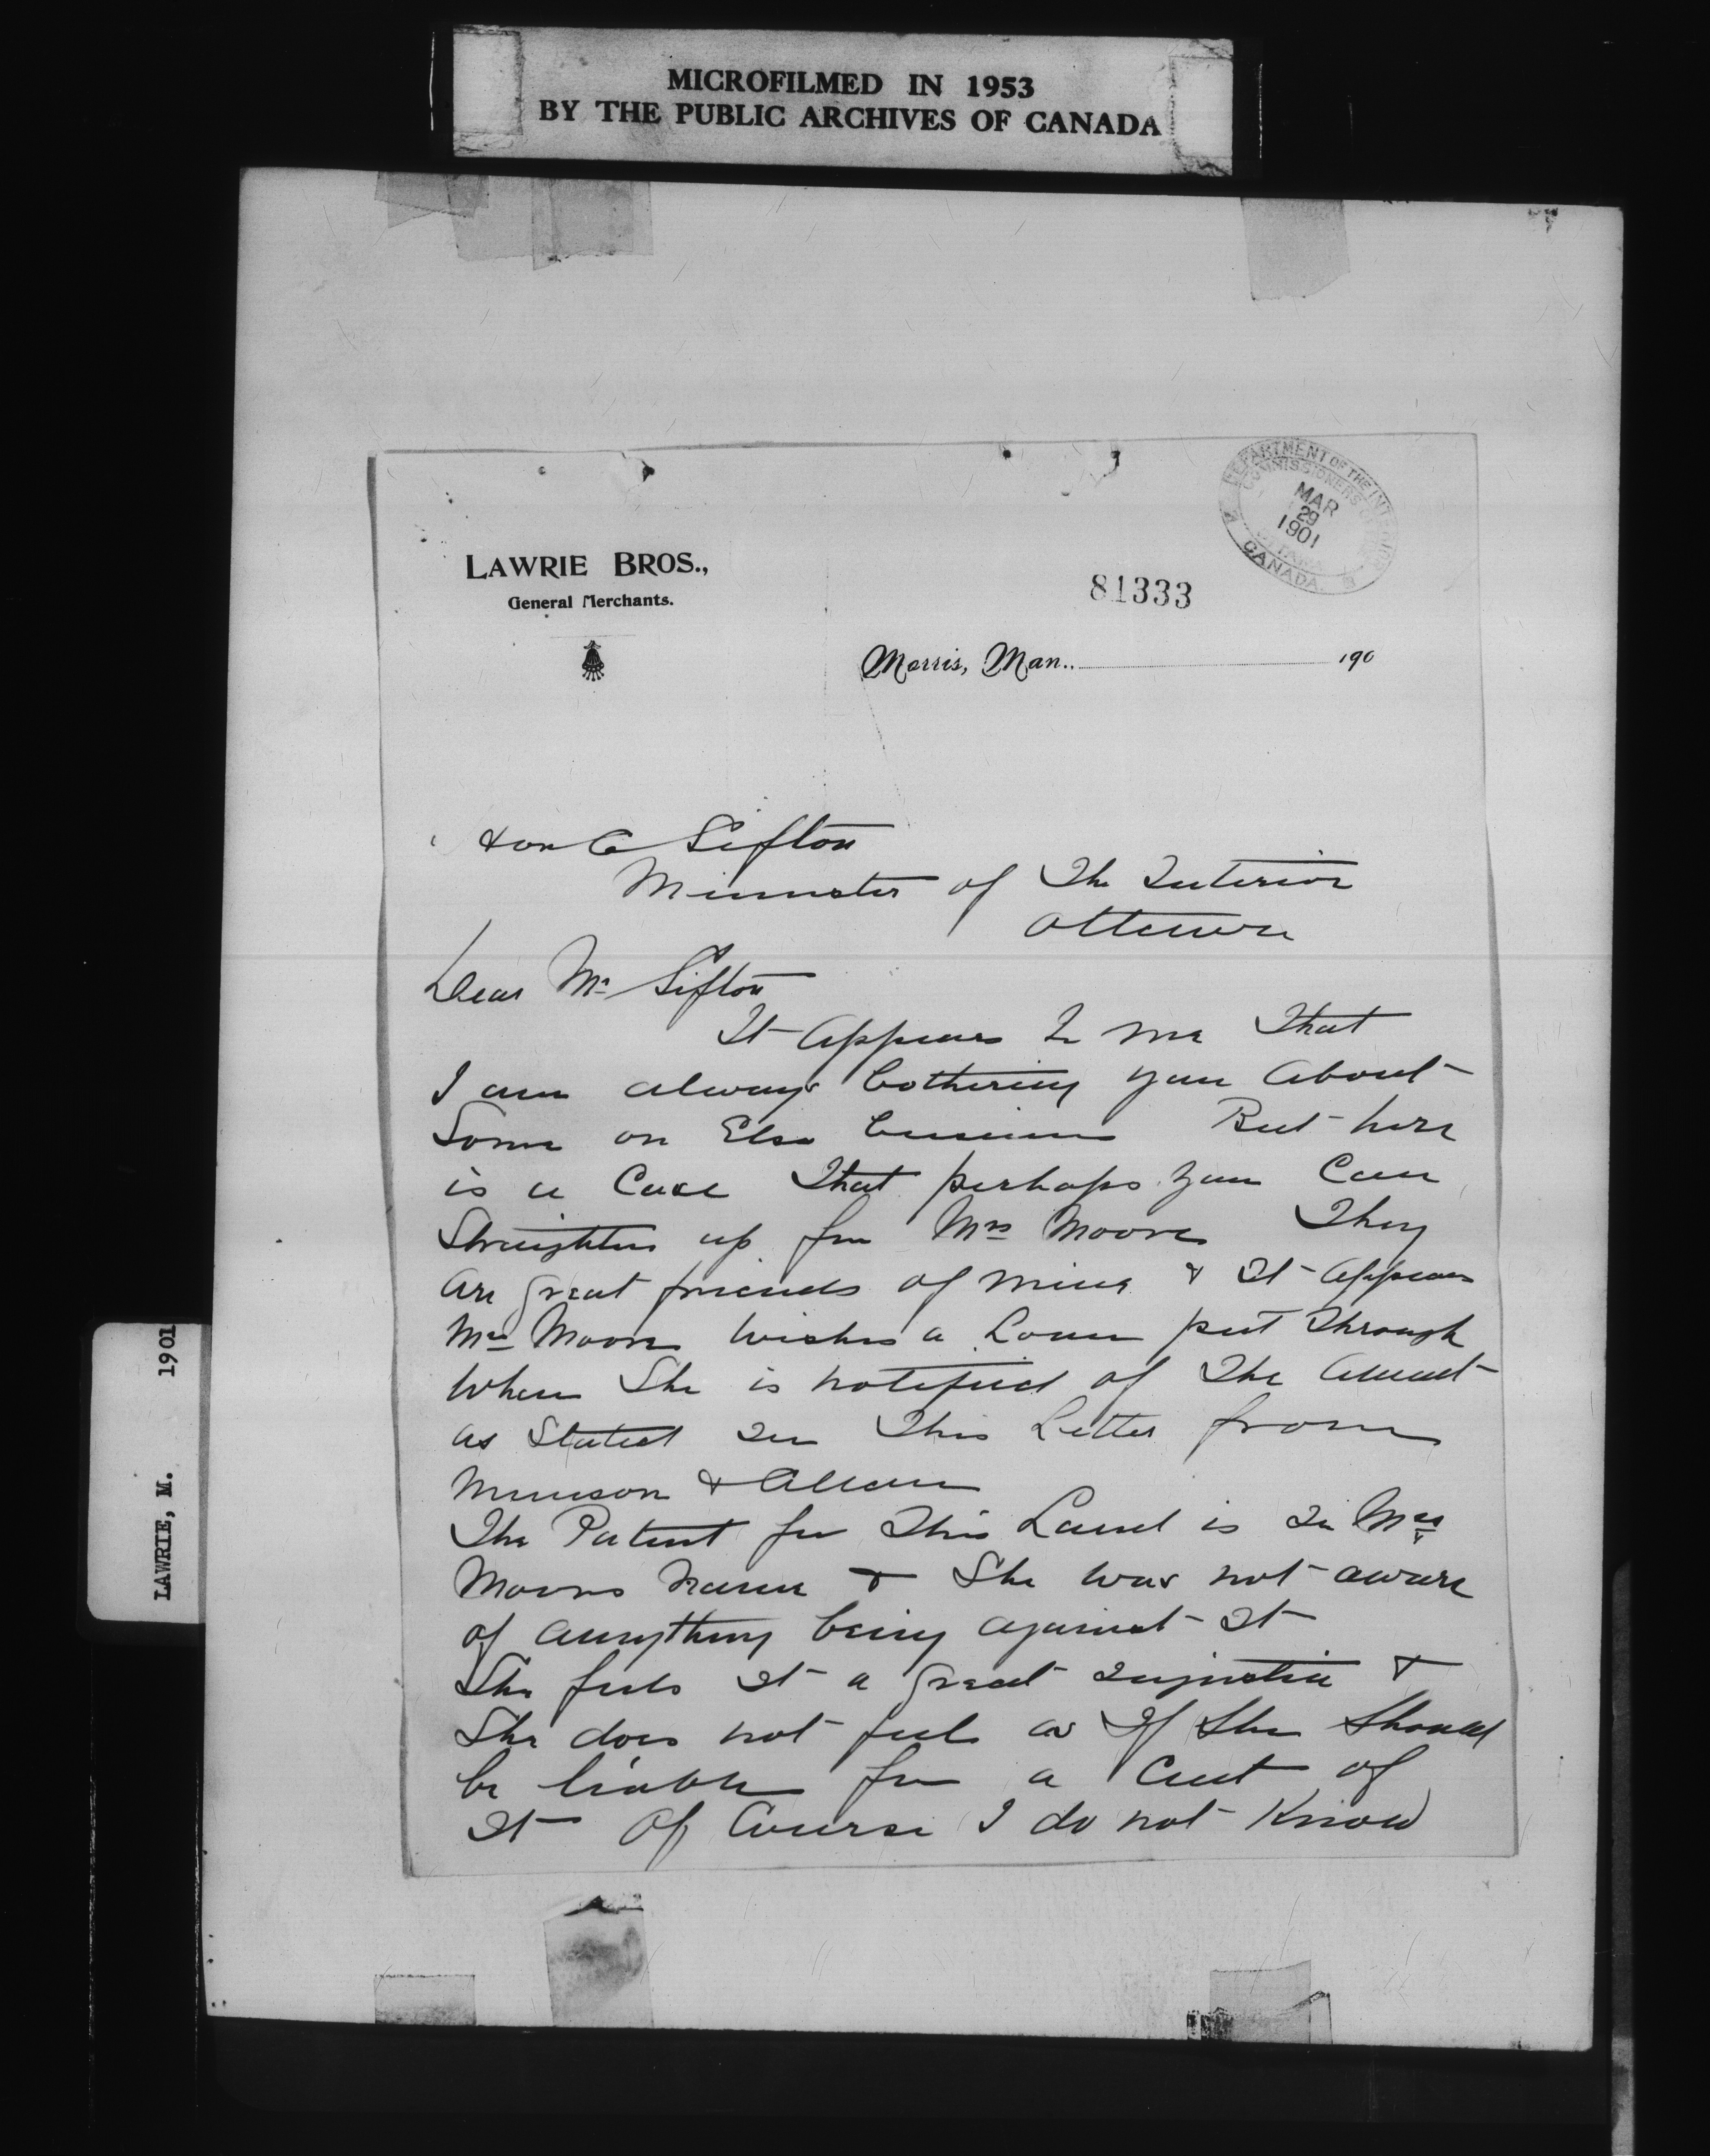 MICROFILMED IN 1953
BY THE PUBLIC ARCHIVES OF CANADA
DEPARTMENT OF THE INTERIOR
COMMISSIONERS
MAR
29
1901
CANADA
LAWRIE BROS.,
General Merchants.
81333
Morris, Man.. 190
Hon C Sifton
Minister of The Interior
Ottawa
Dear Mr Sifton
It Appears to me That
I am always bothering you About
Some on Else business But here
is a Case That perhaps you Can
Straighten up for Mrs Moore They
are great friends of mine & It Appears
Mrs Moore wishes a Loan put Through
When She is notified of The Amount
as Stated in This Letter from
Munson & Allan
The Patent for This Land is in Mrs
Moores Name & She was not aware
of anything being against It
She feels It a great injustice &
She does not feel as If She Should
be liable for a Cent of
It Of Course I do not Know
LAWRIE, M. 1901